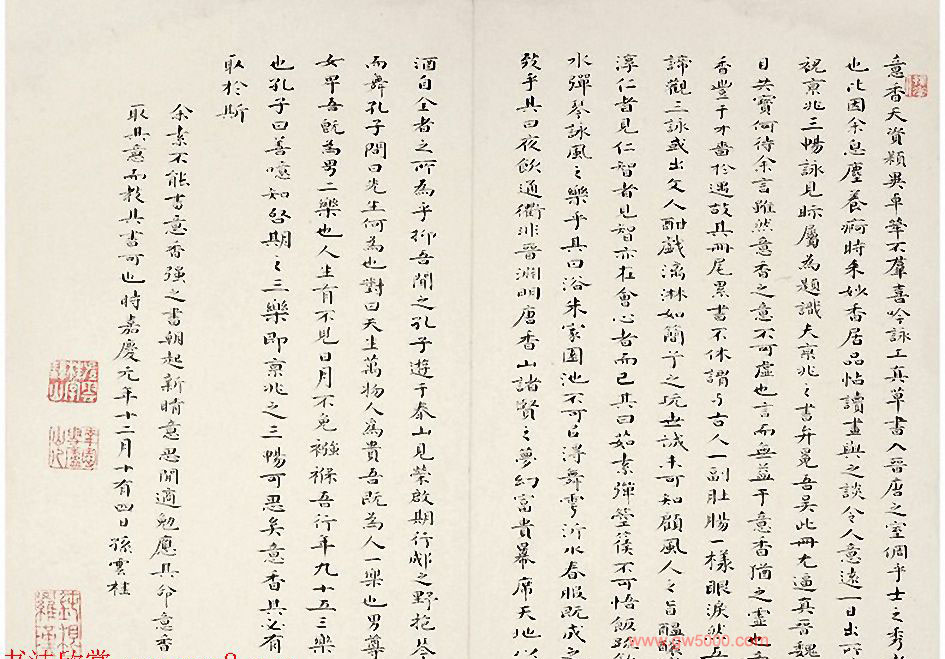 意香天資穎異卓犖不羣喜吟詠工真草書入晉唐之室倜乎士之秀
也比因余息塵養痾時來妙香居品帖讀畫與之談令人意遠一日出
祝京兆三暢詠見眎屬為題識夫京兆之書弁冕吾吳此冊尤逼真晉魏
日共寶何待余言雖然意香之意不可虛也言而無益于意香猶之虛也
香豐于才嗇於遇故其冊尾累書不休謂與古人一副肚腸一樣眼淚然
諦觀三詠或出文人酣戲漓淋如簡子之玩世誠未可知顧風人之旨醞
淳仁者見仁智者見智亦在會心者而已其曰茹素彈箜篌不可悟飯
水彈琴詠風之樂乎其曰浴朱家園池不可得舞雩沂水春服既成之
致乎其曰夜飲通衢非晉淵明唐香山諸賢之夢幻富貴幕席天地以
酒自全者之所為乎抑吾聞之孔子遊于泰山見榮啟期行郕之野抱琴
而舞孔子問曰先生何為也對曰天生萬物人為貴吾既為人一樂也男尊
女卑吾既為男二樂也人生有不見日月不免襁褓吾行年九十五三樂
也孔子曰善噫知啓期之三樂即京兆之三暢可忍矣意香其必有
取於斯
余素不能書意香强之書朝起新晴意思閒適勉應其命意香
取其意而教其書可也時嘉慶元年十二月十有四日孫雲桂
www.gw5000.com
书法欣赏